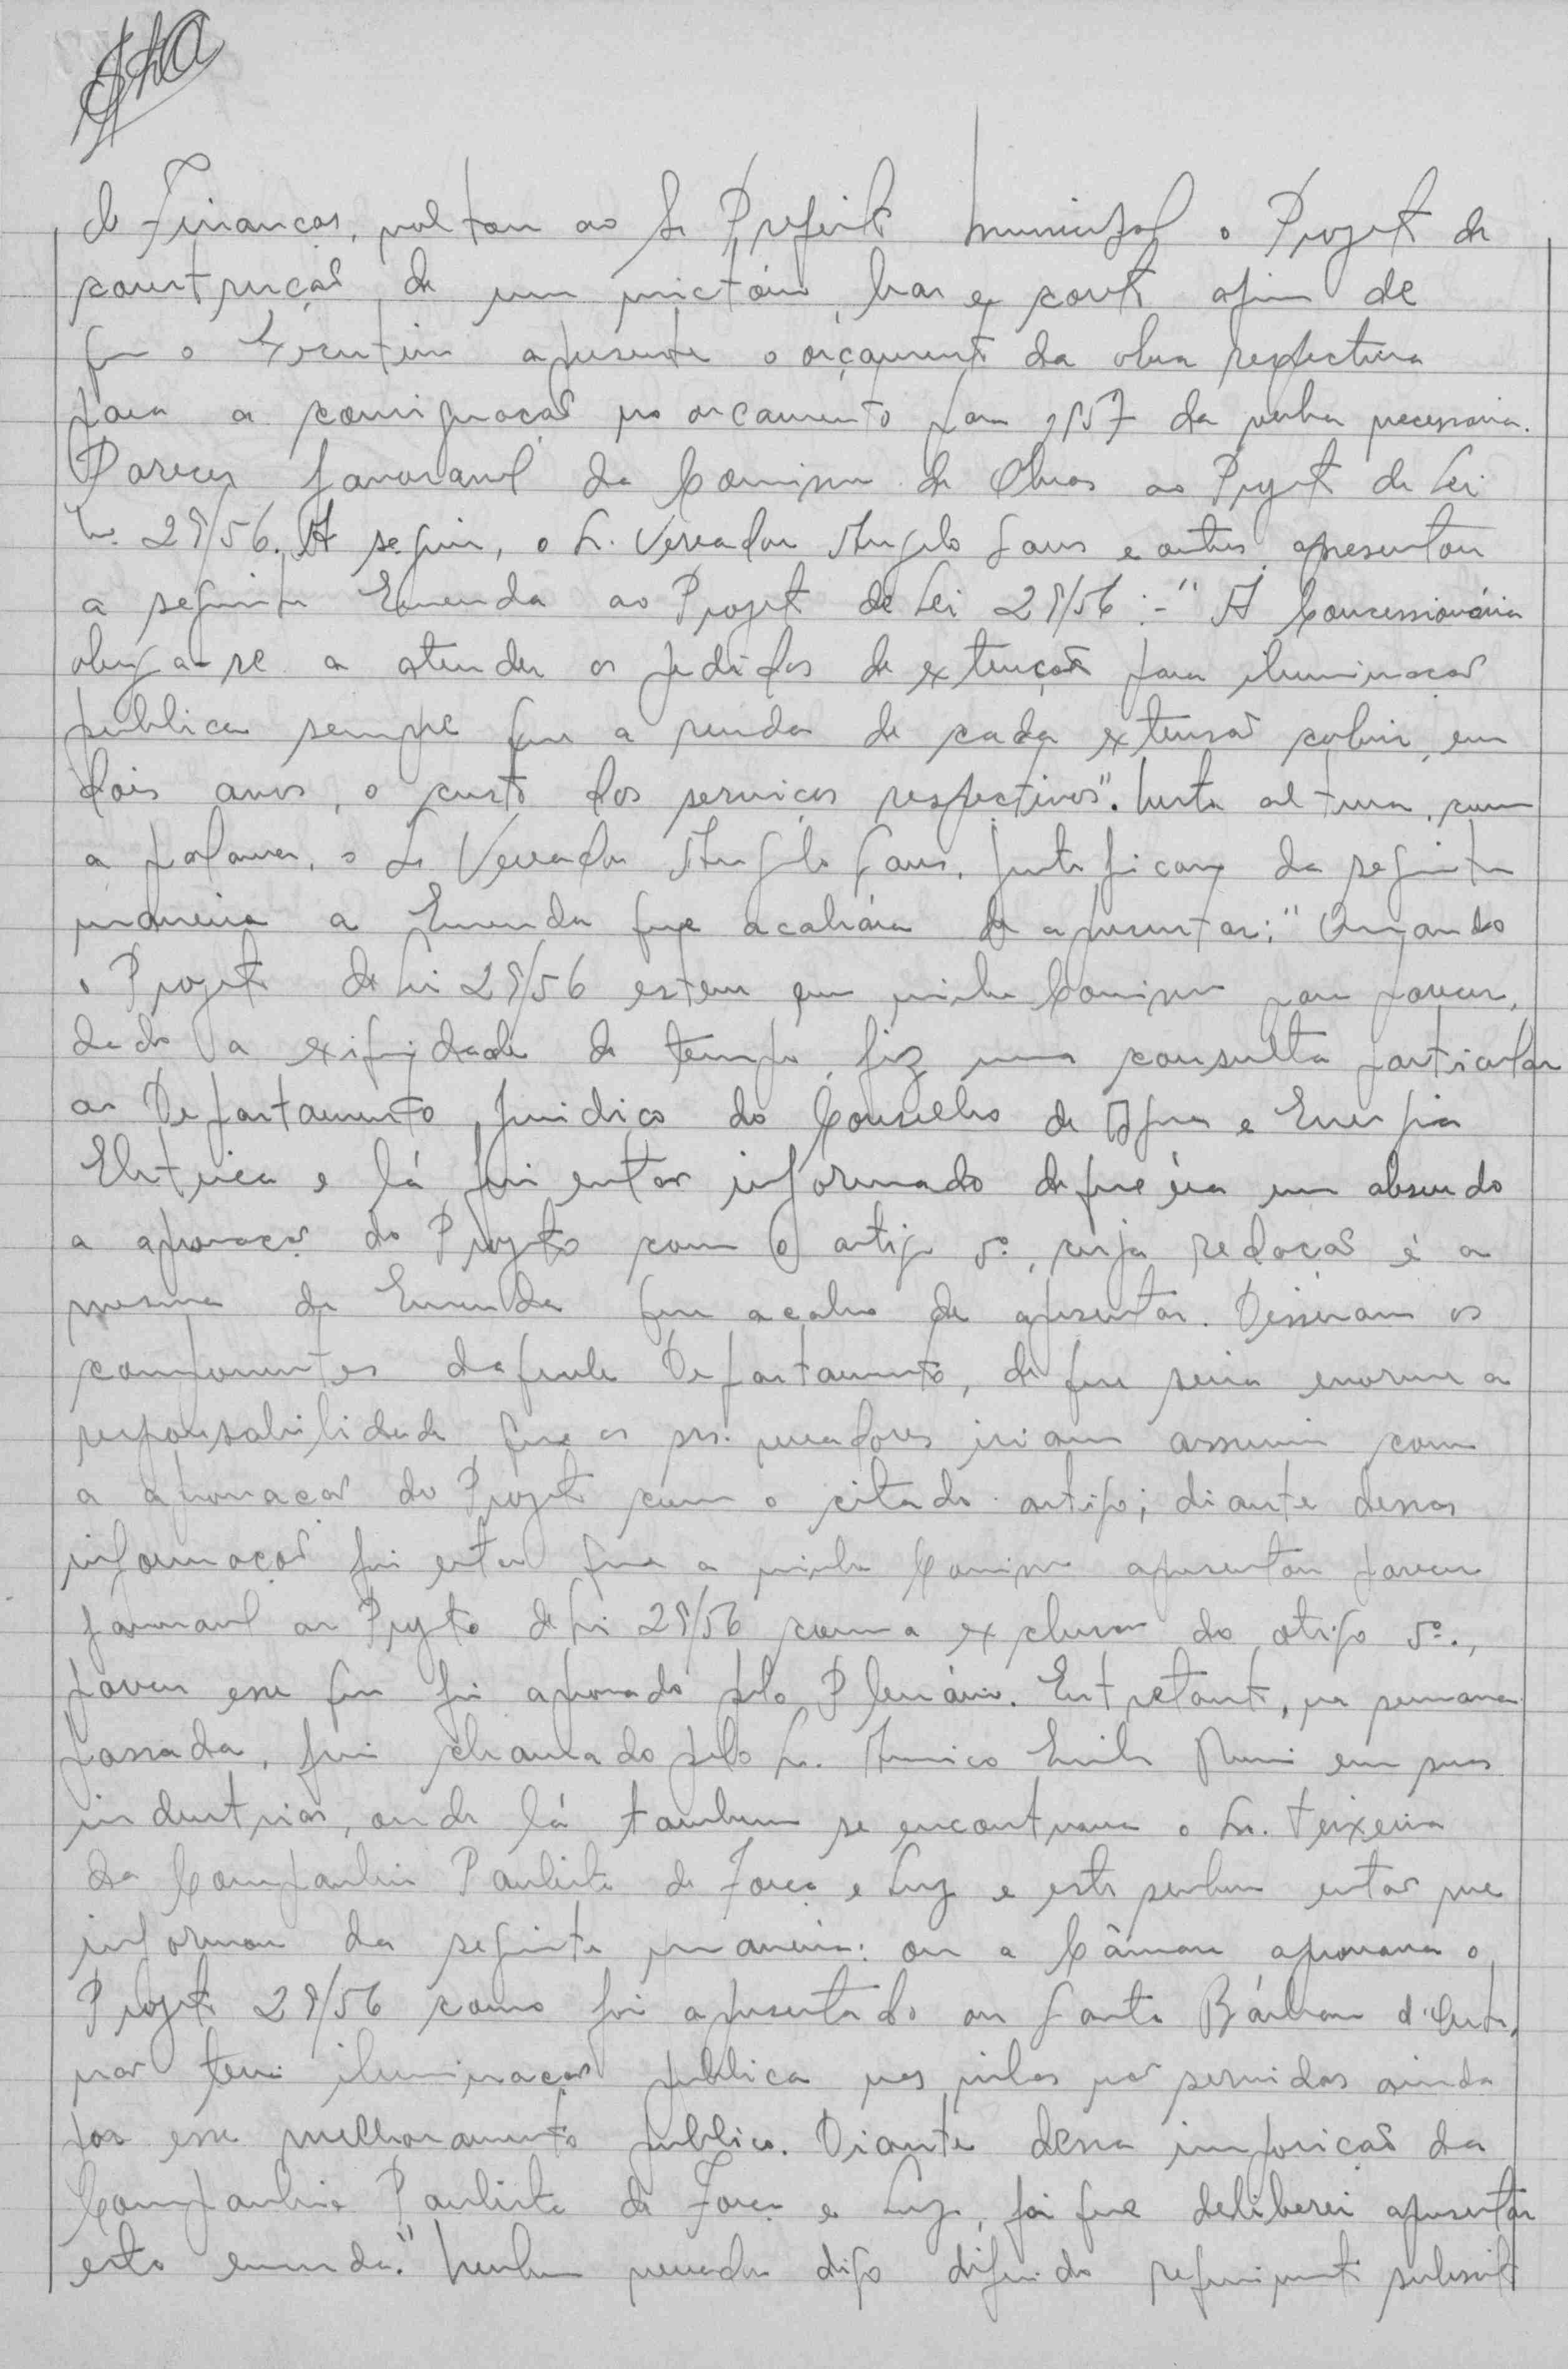 de Finanças, voltou ao Sr Prefeito Municipal o Projeto de
construção de um mictório, bar e coreto afim de
que o Executivo apresente o orçamento da obra respectiva
para a consignação no orcamento para 1957 da verba necessaria.
Parecer favoravel da Comissão de Obras ao Projeto de Lei
no. 28/56. A seguir, o Sr. Vereador Angelo Sans e outros apresentou
a seguinte Emenda ao Projeto de Lei 28/56:- "A Concessionária
obriga-se a atender os pedidos de extenção para iluminação
publica sempre que a renda de cada extensão cobrir, em
dois anos, o custo dos serviços respectivos". Nesta altura, com
a palavra, o Sr Vereador Angelo Sans, justificou da seguinte
maneira a Emenda que acabára de apresentar: "Quando
o Projeto de Lei 28/56 esteve em minha Comissão para parecer,
dado a exiguidade de tempo, fiz uma consulta particular
ao Departamento Juridico do Conselho de Agua e Energia
Eletrica e lá fui então informado de que éra um absurdo
a aprovação do Projeto com o artigo 5º, cuja redação é a
mesma da Emenda que acabo de apresentar. Disseram os
componentes daquele Departamento, de que seria enorme a
responsabilidade que os srs. vereadores iriam assumir com
a aprovação do Projeto com o citado artigo; diante dessa
informação foi então que a minha Comissão apresentou parecer
favoravel ao Projeto de Lei 28/56 com a exclusão do artigo 5º.,
parecer esse que foi aprovado pelo Plenário. Entretanto, na semana
passada, fui chamado pelo Sr. Americo Emilio Romi em suas
industrias, onde lá tambem se encontrava o Sr. Teixeira
da Companhia Paulista de Força e Luz e este senhor então me
informou da seguinte maneira: ou a Câmara aprovava o
Projeto 28/56 como foi apresentado ou Santa Bárbara d'Oeste,
não teria iluminação publica nas vilas não servidas ainda
por esse melhoramento publico. Diante dessa imposição da
Companhia Paulista de Força e Luz, foi que deliberei apresentar
esta emenda." Nenhum vereador digo deferido requerimento subscrito